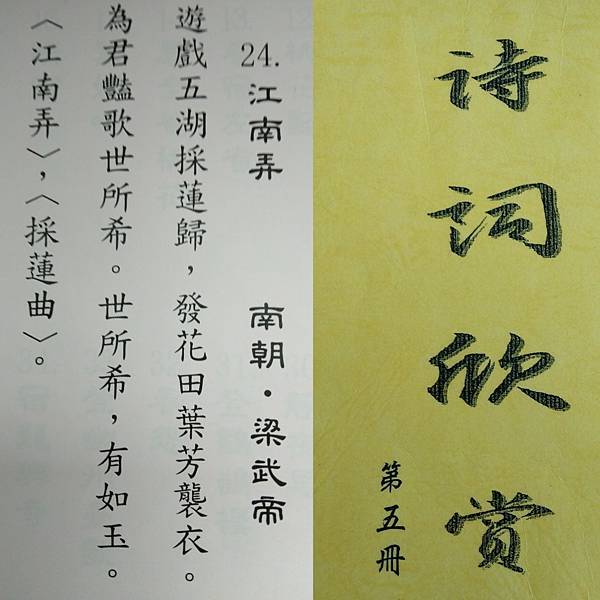 24.江南弄 南朝·梁武帝
遊戲五湖採蓮歸，發花田葉芳襲衣。
為君豔歌世所希。世所希，有如玉。
〈江南弄〉，〈採蓮曲〉。
詩詞欣賞
第五冊